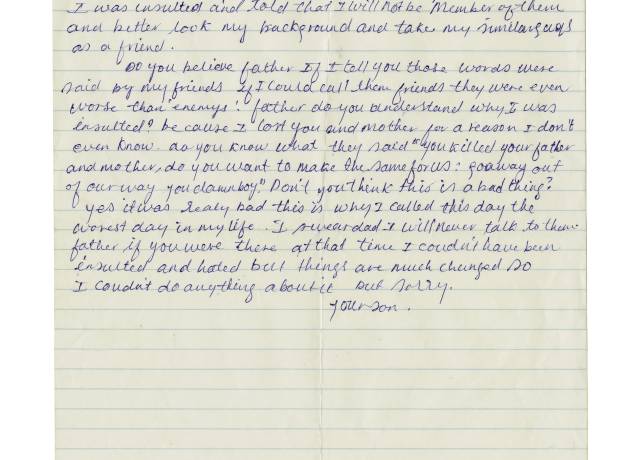 I was insulted and told that I will not be member of them
and better look my background and take my similar guys
as a friend.
Do you believe father If I tell you those words were
said by my friends If I could call them friends they were even
worse than enemys! father do you understand why I was
insulted? because I lost you and mother for a reason I don't
even know. do you know what they said "you killed your father
and mother, do you want to make the same for us: go away out
of our way you damn boy!" Don't you think this is a bad thing?
yes it was Realy bad this is why I called this day the
worest day in my life. I swear dad I will never talk to them.
father, if you were there at that time I coudn't have been
insulted and hated but things are much changed so
I coudn't do anything about it but sorry.
your son.